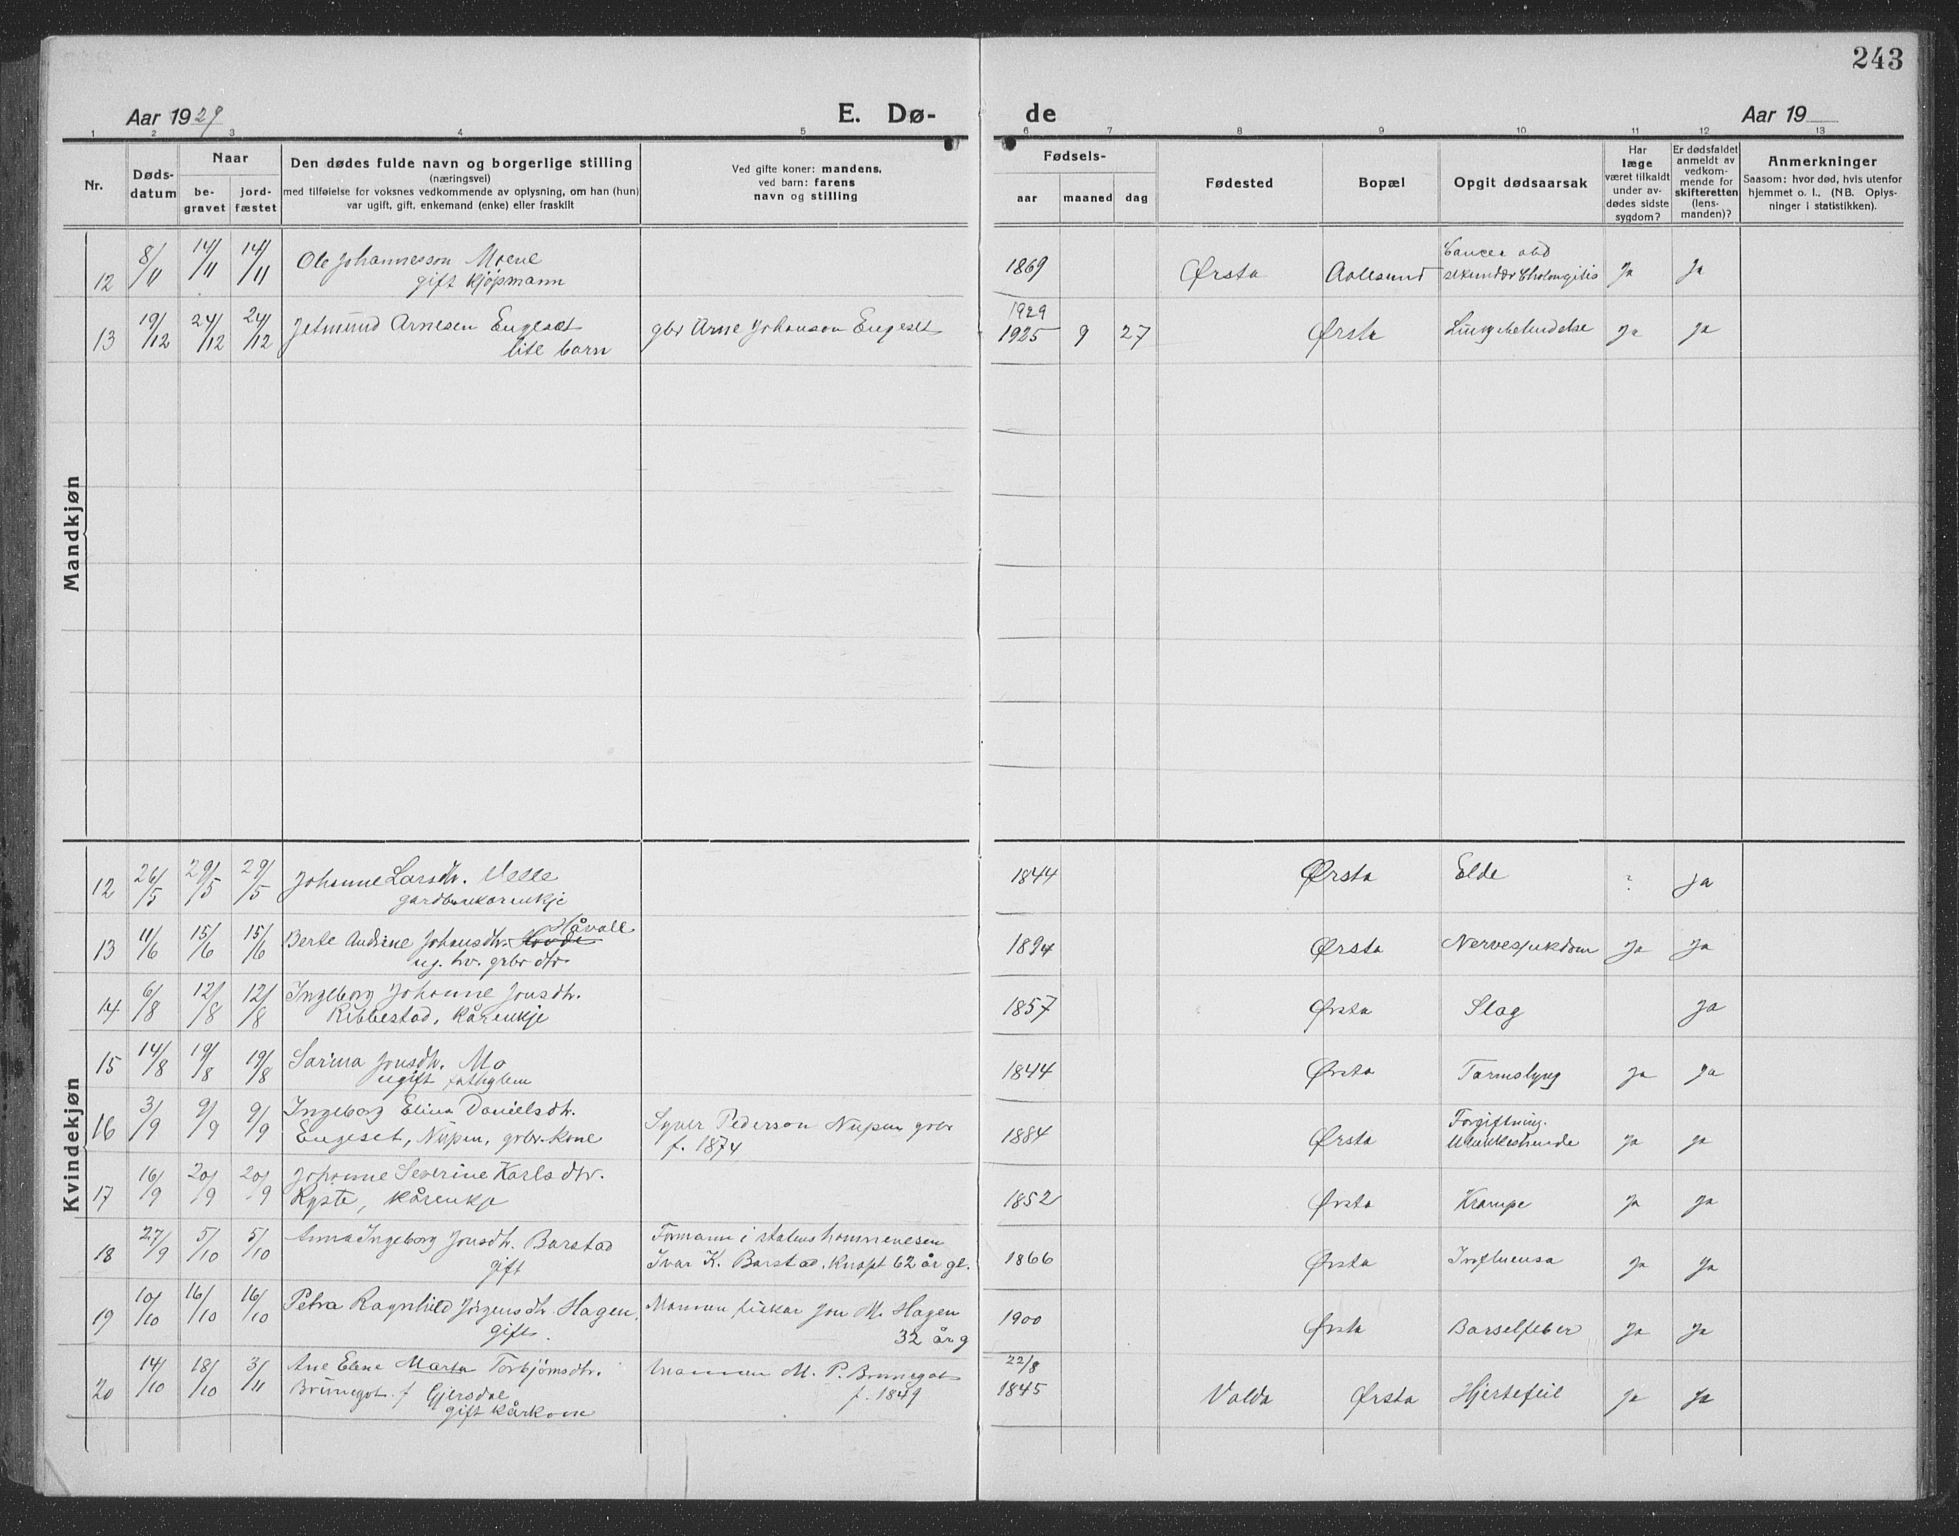 243
Aar 1929 E. Dø- de Aar 19
1 2 3 4 5 6 7 8 9 10 11 12 13
Nr.
Døds-
datum
Naar
be-
gravet
jord-
fæstet
Den dødes fulde navn og borgerlige stilling
(næringsvei)
med tilføielse for voksnes vedkommende av oplysning, om han (hun)
var ugift, gift, enkemand (enke) eller fraskilt
Ved gifte koner: mandens,
ved barn: farens
navn og stilling
Fødsels-
aar maaned dag
Fødested
Bopæl
Opgit dødsaarsak
Har
læge
været tilkaldt
under av-
dødes sidste
sygdom?
Er dødsfaldet
anmeldt av
vedkom-
mende for
skifteretten
(lens-
manden)?
Anmerkninger
Saasom: hvor død, hvis utenfor
hjemmet o. l., (NB. Oplys-
ninger i statistikken).
Mandkjøn
12 8/11 14/11 14/11 Ole Johannesson Moene 1869 Ørsta Aalesund Cancer abd Ja Ja
gift kjøpmann sekundær Cholangitis
13 19/12 24/12 24/12 Jetmund Arnesen Engeset gbr Arne Johanson Engeset 1929
lite barn 1925 9 27 Ørsta Lungebetendelse Ja Ja
Kvindekjøn
12 26/5 29/5 29/5 Johanne Larsdtr. Velle 1844 Ørsta Elde ? Ja
gardbrukarenkje
13 11/6 15/6 15/6 Berte Andrine Johansdtr. Hovde Håvoll 1894 Ørsta Nervesjukdom Ja Ja
ug. hv. grbr dtr
14 6/8 12/8 12/8 Ingeborg Johanne Jonsdtr. 1857 Ørsta Slag Ja
Ribbestad, kårenkje
15 14/8 19/8 19/8 Sarina Jonsdtr. Mo 1844 Ørsta Tarmslyng Ja Ja
ugift fathylem
16 3/9 9/9 9/9 Ingeborg Elina Danielsdtr. Syver Pederson Nupen grbr 1884 Ørsta Forgiftning. Ja Ja
Engeset, Nupen, grbr.kone f. 1874
17 16/9 20/9 20/9 Johanne Severine Karlsdtr. 1852 Ørsta Krampe Ja Ja
Ryste, kårenkje
18 27/9 5/10 5/10 Anna Ingeborg Jonsdtr. Barstad Formann i statens havnevesen 1866 Ørsta Influensa Ja Ja
gift Ivar K. Barstad. knapt 62 år gl.
19 10/10 16/10 16/10 Petra Ragnhild Jørgensdtr Hagen, Mannen fiskar Jon M. Hagen 1900 Ørsta Barselfeber Ja Ja
gift. 32 år g
20 14/10 18/10 3/11 Ane Eline Marta Torbjørnsdtr. Mannen M. P. Brunegot 22/8
Brunegot. f Gjersdal f. 1849 1845 Volda Ørsta Hjertefeil Ja Ja
gift kårkone